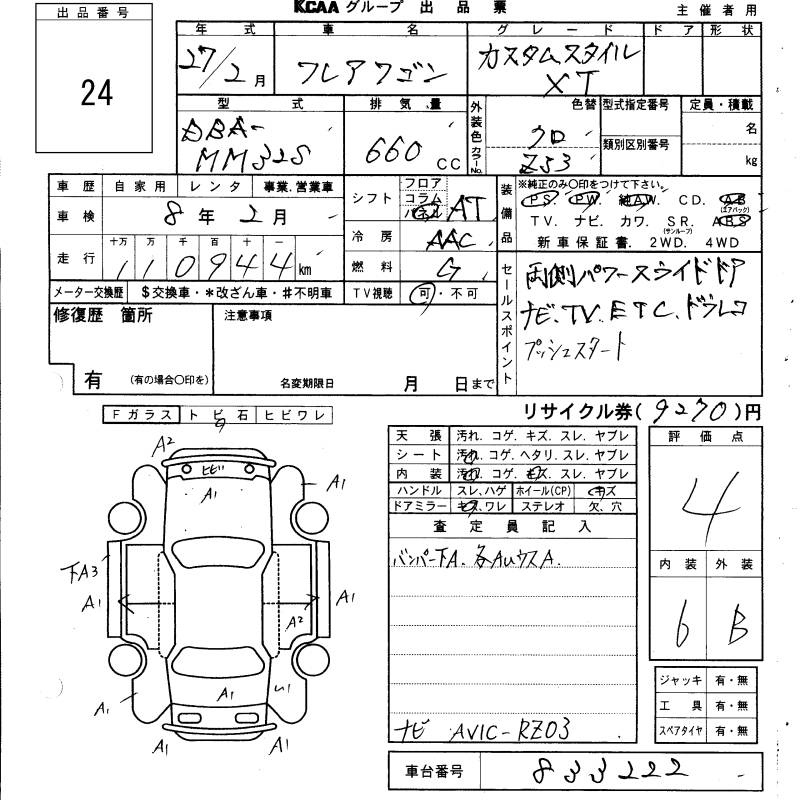 KCAA グループ 出品票
主催者用
出品番号
24
年式 車名 グレード ドア 形状
27/2月 フレアワゴン カスタムスタイル
XT
型式 排気量 外装色 カラーNo. 色替 型式指定番号 定員・積載
DBA-
MM32S 660 CC クロ 類別区別番号 名
Z53 kg
車歴 自家用 レンタ 事業.営業車
車検 8年 2月
走行 十万 万 千 百 十 一
110944km
シフト フロア コラム AT
冷房 AAC
燃料 G
装備品 ※純正のみ〇印をつけて下さい。
PS. PW. 純AW. CD. AB(エアバック)
TV. ナビ. カワ. SR.(サンルーフ) ABS
新車保証書. 2WD. 4WD
メーター交換歴 $交換車・*改ざん車・#不明車 TV視聴 可・不可
セールスポイント 両側パワースライドドア
ナビ.TV.ETC.ドラレコ
プッシュスタート
修復歴 箇所 注意事項
有 (有の場合〇印を) 名変期限日 月 日まで
リサイクル券(9270)円
Fガラス トビ石 ヒビワレ
天張 汚れ. コゲ. キズ. スレ. ヤブレ
シート 汚れ. コゲ. ヘタリ. スレ. ヤブレ
内装 汚れ. コゲ. キズ. スレ. ヤブレ
ハンドル スレ、ハゲ ホイール(CP) キズ
ドアミラー キズ、ワレ ステレオ 欠、穴
評価点
4
内装 外装
6 B
査定員記入
バンパー下A. 各AUウスA.
ナビ AVIC-RZ03
A2
ヒビ
A1
A1
下A3
A1
A1
A2
A1
A1
A1
A1
ジャッキ 有・無
工具 有・無
スペアタイヤ 有・無
車台番号 833222